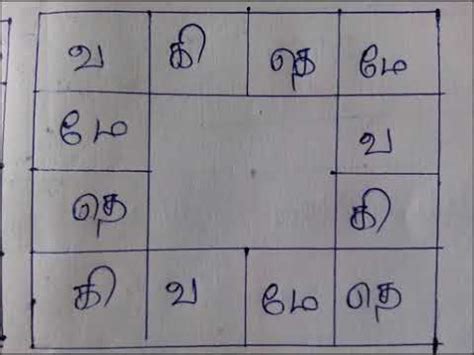 வ கி தெ மே
மே வ
தெ கி
கி வ மே தெ